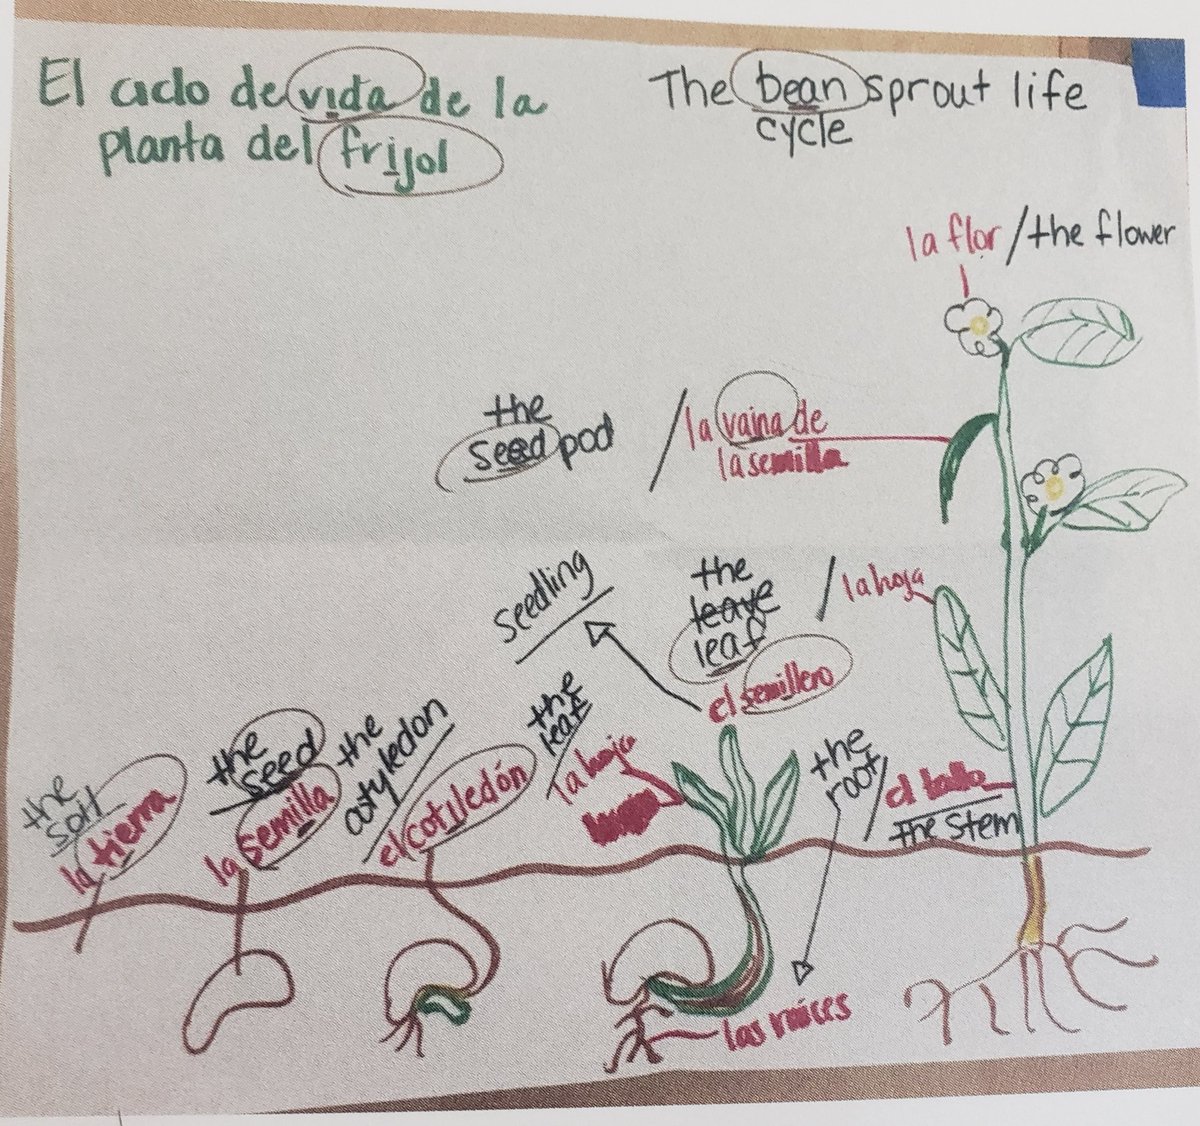 El ciclo de vida de la
planta del frijol
The bean sprout life
cycle
la flor / the flower
the
seed pod
/ la vaina de
la semilla
seedling
the
leave
leaf
/ la hoja
el semillero
the
soil
la tierra
the
seed
la semilla
the
cotyledon
el cotiledón
the
leaf
la hoja
the
root
/ el tallo
the stem
las raíces